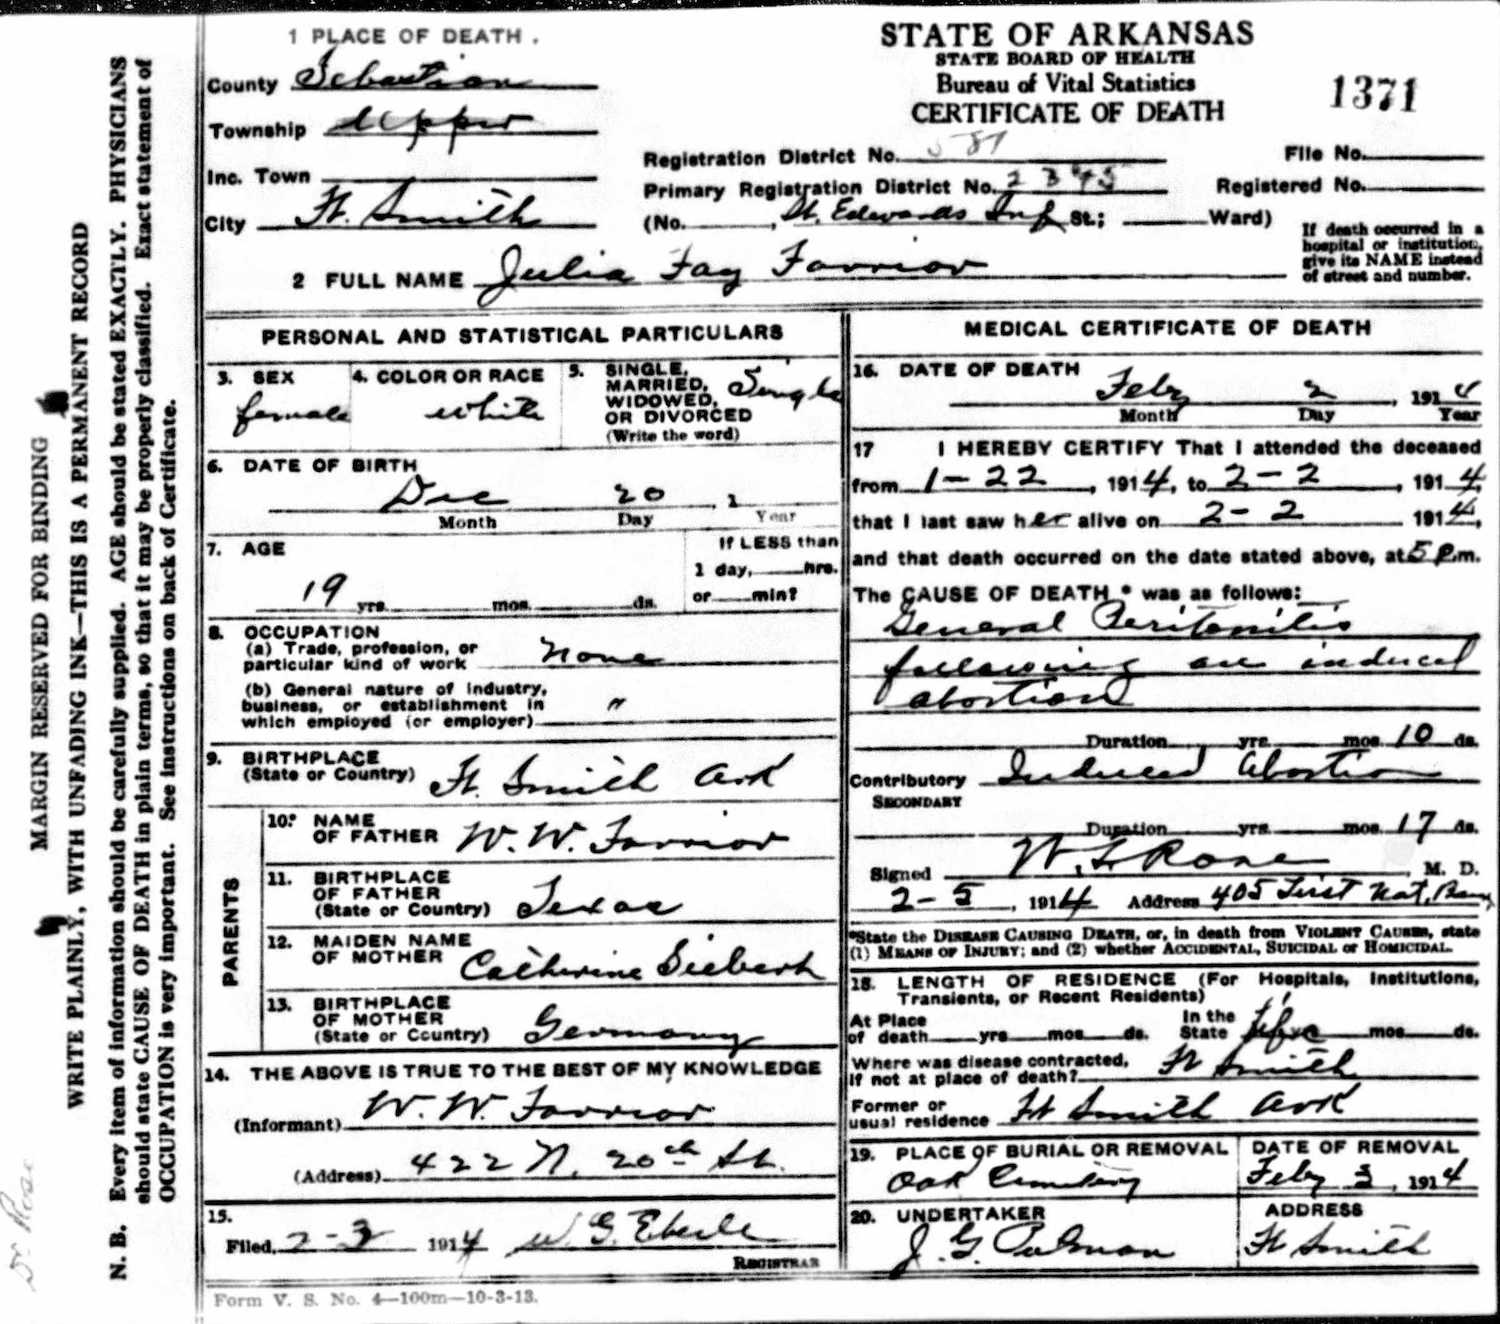 1 PLACE OF DEATH.
County Sebastian
Township Upper
Inc. Town
City Ft. Smith
STATE OF ARKANSAS
STATE BOARD OF HEALTH
Bureau of Vital Statistics
CERTIFICATE OF DEATH
1371
Registration District No. 587
File No.
Primary Registration District No. 2895
Registered No.
(No. St. Edwards Inf St.; Ward)
If death occurred in a
hospital or institution,
give its NAME instead
of street and number.
2 FULL NAME Julia Fay Farrior
PERSONAL AND STATISTICAL PARTICULARS
3. SEX
female
4. COLOR OR RACE
white
5. SINGLE,
MARRIED,
WIDOWED,
OR DIVORCED
(Write the word)
Single
6. DATE OF BIRTH
Dec 20, 1
Month Day Year
7. AGE
19 yrs. mos. ds.
If LESS than
1 day, hrs.
or min?
8. OCCUPATION
(a) Trade, profession, or
particular kind of work None
(b) General nature of industry,
business, or establishment in
which employed (or employer) "
9. BIRTHPLACE
(State or Country) Ft. Smith Ark
PARENTS
10. NAME
OF FATHER W. W. Farrior
11. BIRTHPLACE
OF FATHER
(State or Country) Texas
12. MAIDEN NAME
OF MOTHER Catherine
13. BIRTHPLACE
OF MOTHER
(State or Country) Germany
14. THE ABOVE IS TRUE TO THE BEST OF MY KNOWLEDGE
(Informant) W. W. Farrior
(Address) 422 N. 20th St.
15.
Filed, 2-3 1914 W. G. Eberle
REGISTRAR
Form V. S. No. 4—100m—10-3-13.
MEDICAL CERTIFICATE OF DEATH
16. DATE OF DEATH
Feby 2, 1914
Month Day Year
17 I HEREBY CERTIFY That I attended the deceased
from 1-22, 1914, to 2-2, 1914,
that I last saw her alive on 2-2 1914,
and that death occurred on the date stated above, at 5 p.m.
The CAUSE OF DEATH * was as follows:
General Peritonitis
following an induced
abortion
Duration yrs. mos. 10 ds.
Contributory Induced Abortion
SECONDARY
Duration yrs. mos. 17 ds.
Signed W. F. Rose, M. D.
2-5, 1914 Address 405 First Nat. Bank
*State the DISEASE CAUSING DEATH, or, in death from VIOLENT CAUSES, state
(1) MEANS OF INJURY; and (2) whether ACCIDENTAL, SUICIDAL or HOMICIDAL.
18. LENGTH OF RESIDENCE (For Hospitals, Institutions,
Transients, or Recent Residents)
At Place
of death yrs. mos. ds.
In the
State life mos. ds.
Where was disease contracted,
if not at place of death? Ft Smith
Former or
usual residence Ft Smith Ark
19. PLACE OF BURIAL OR REMOVAL
Oak Cemetery
DATE OF REMOVAL
Feby 3, 1914
20. UNDERTAKER
J. G. Putman
ADDRESS
Ft Smith
MARGIN RESERVED FOR BINDING
WRITE PLAINLY, WITH UNFADING INK—THIS IS A PERMANENT RECORD
N. B. Every item of information should be carefully supplied. AGE should be stated EXACTLY. PHYSICIANS
should state CAUSE OF DEATH in plain terms, so that it may be properly classified. Exact statement of
OCCUPATION is very important. See instructions on back of Certificate.
Dr Rose